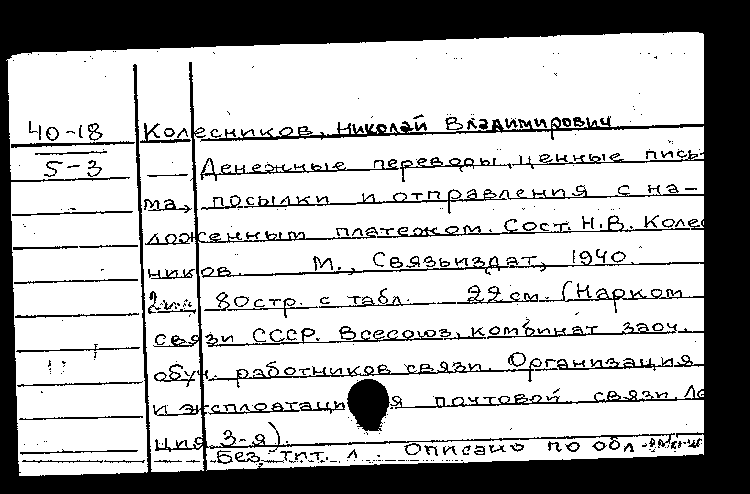 40-18 Колесников, Николай Владимирович
5-3 Денежные переводы, ценные пись-
ма, посылки и отправления с на-
ложенным платежом. Сост. Н.В. Колес
ников. М., Связьиздат, 1940.
80 стр. с табл. 22 см. (Нарком
связи СССР. Всесоюз. комбинат заоч.
обуч. работников связи. Организация
и эксплоатация почтовой связи. Ле
ция 3-я).
Без тит. л. Описано по обл